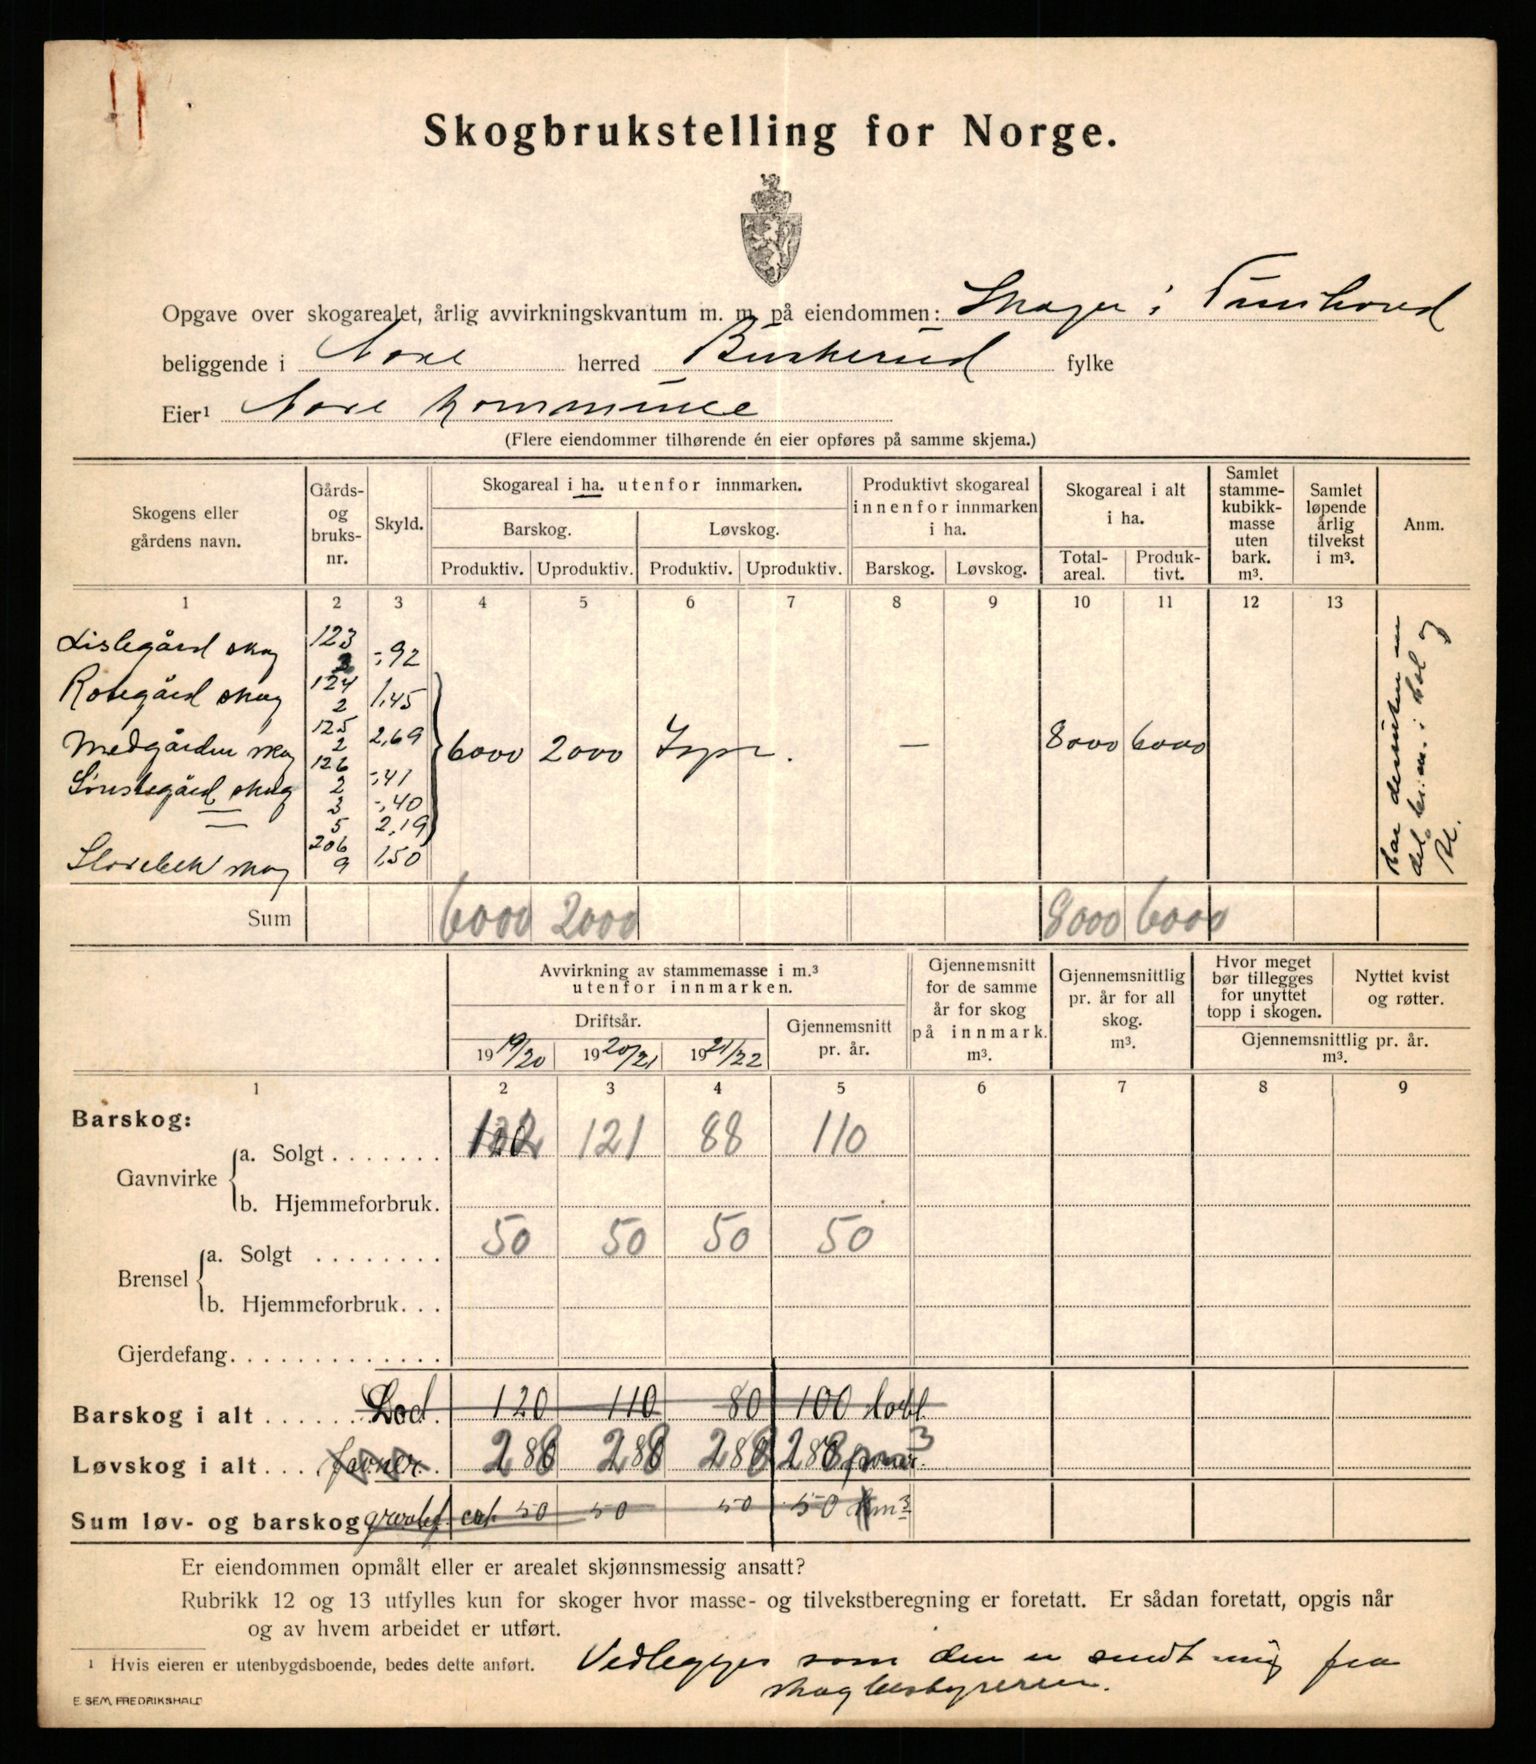 Skogbrukstelling for Norge.
Opgave over skogarealet, årlig avvirkningskvantum m. m. på eiendommen: Skoger i Tunhovd
beliggende i Nore herred Buskerud fylke
Eier¹ Nore kommune
(Flere eiendommer tilhørende én eier opføres på samme skjema.)
Skogens eller gårdens navn. Gårds- og bruks-nr. Skyld. Skogareal i ha. utenfor innmarken. Produktivt skogareal innenfor innmarken i ha. Skogareal i alt i ha. Samlet stamme-kubikk-masse uten bark. m³. Samlet løpende årlig tilvekst i m³. Anm.
Barskog. Løvskog.
Produktiv. Uproduktiv. Produktiv. Uproduktiv. Barskog. Løvskog. Total-areal. Produk-tivt.
1 2 3 4 5 6 7 8 9 10 11 12 13
Lislegård skog 123 2 -,92
Rosegård skog 124 2 1,45
Medgården skog 125 2 2,69 6000 2000 Ingen. — 8000 6000
Sønstegård skog 126 2 -,41
3 -,40
5 2,19
Storebek skog 206 9 1,50
Sum 6000 2000 8000 6000
Avvirkning av stammemasse i m.³ utenfor innmarken.
Gjennemsnitt for de samme år for skog på innmark. m³.
Gjennemsnittlig pr. år for all skog. m³.
Hvor meget bør tillegges for unyttet topp i skogen.
Nyttet kvist og røtter.
Driftsår. Gjennemsnitt pr. år.
Gjennemsnittlig pr. år. m³.
1919/20 1920/21 1921/22
1 2 3 4 5 6 7 8 9
Barskog:
Gavnvirke
a. Solgt . . . . . . . 121 88 110
b. Hjemmeforbruk.
Brensel
a. Solgt . . . . . . . 50 50 50 50
b. Hjemmeforbruk. . .
Gjerdefang. . . . . . . . . . . . .
Barskog i alt . . . . . . 120 110 80 100
Løvskog i alt. . . favner. 288 288 288 288
Sum løv- og barskog 50 50 50 50 m³
Er eiendommen opmålt eller er arealet skjønnsmessig ansatt?
Rubrikk 12 og 13 utfylles kun for skoger hvor masse- og tilvekstberegning er foretatt. Er sådan foretatt, opgis når
og av hvem arbeidet er utført.
¹ Hvis eieren er utenbygdsboende, bedes dette anført.
Vedlegges som den er sendt mig fra
skogbestyreren.
E. SEM, FREDRIKSHALD